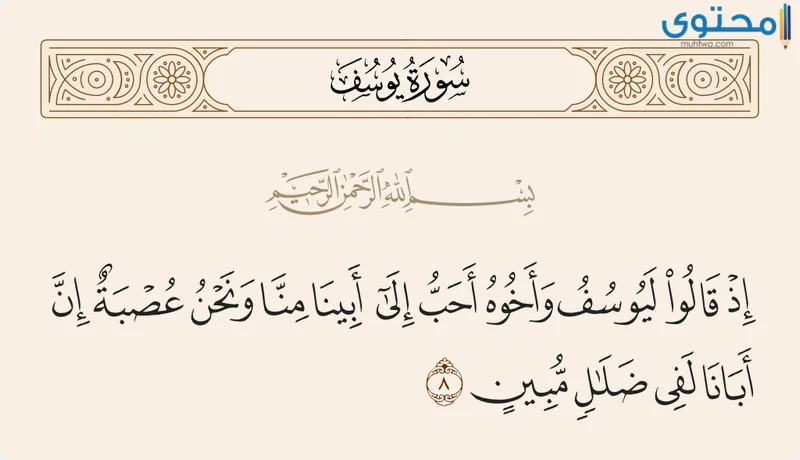 محتوى
muhtwa.com
سُورَةُ يُوسُفَ
بِسْمِ ٱللَّهِ ٱلرَّحْمَٰنِ ٱلرَّحِيمِ
إِذْ قَالُوا۟ لَيُوسُفُ وَأَخُوهُ أَحَبُّ إِلَىٰٓ أَبِينَا مِنَّا وَنَحْنُ عُصْبَةٌ إِنَّ
أَبَانَا لَفِى ضَلَٰلٍ مُّبِينٍ ٨